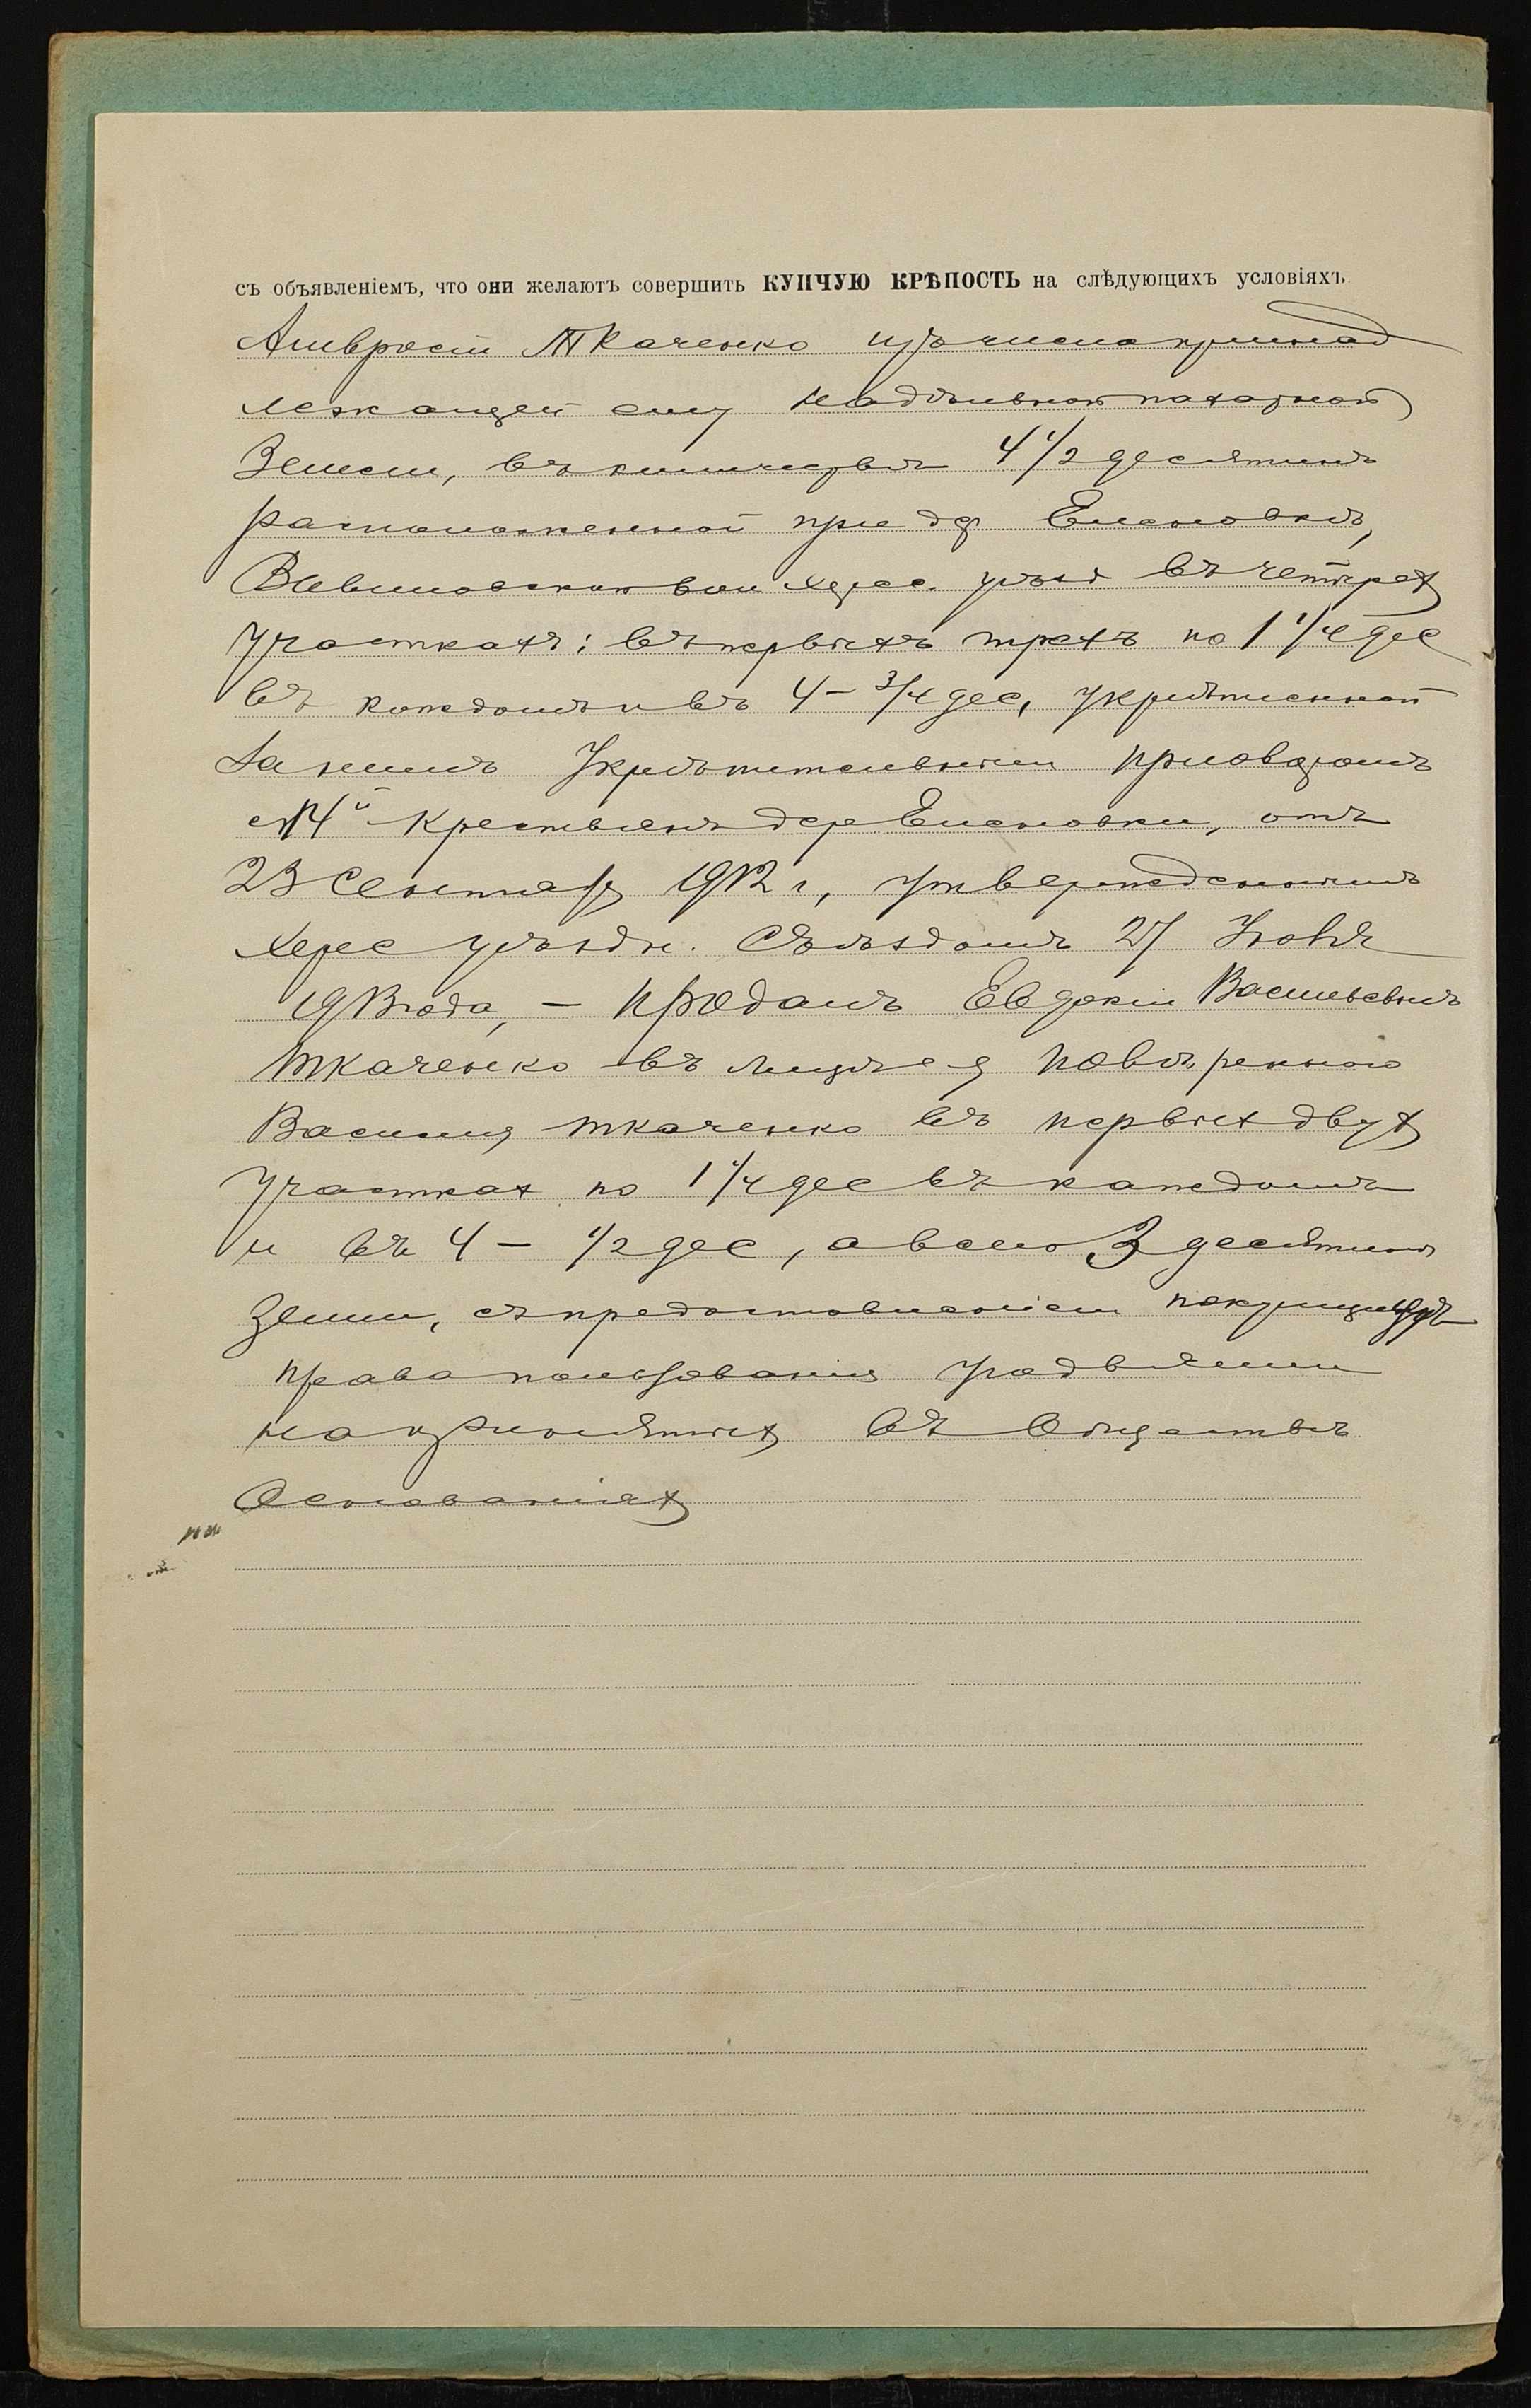 съ объявленіемъ, что они желаютъ совершить КУПЧУЮ КРѢПОСТЬ на слѣдующихъ условіяхъ
Амвросій Ткаченко изъ числа принад
лежащей ему надѣльной пахатной
Земли, въ количествѣ 4 1/2 десятинъ
расположенной при дер Еленовкѣ,
вол Херс. уѣзд въ четырех
участкахъ: въ первыхъ трехъ по 1 1/4 дес
въ каждомъ и въ 4 – 3/4 дес, укрѣпленной
за нимъ Укрѣпительнымъ приговоромъ
Крестьянъ дер Еленовки, отъ
23 Сентября 1912 г, утвержденнымъ
Херс уѣздн. Съѣздомъ 27 Июня
1913 года, – продалъ Евдокіи Васильевнѣ
Ткаченко въ лицѣ ея повѣреннаго
Василия Ткаченко въ первых двух
Участках по 1 1/4 дес въ каждомъ
и въ 4 – 1/2 дес, а всего 3 десятины
Земли, съ предоставленіем покупщицѣ
права пользования угодьями
на принятых въ Обществѣ
Основаніях